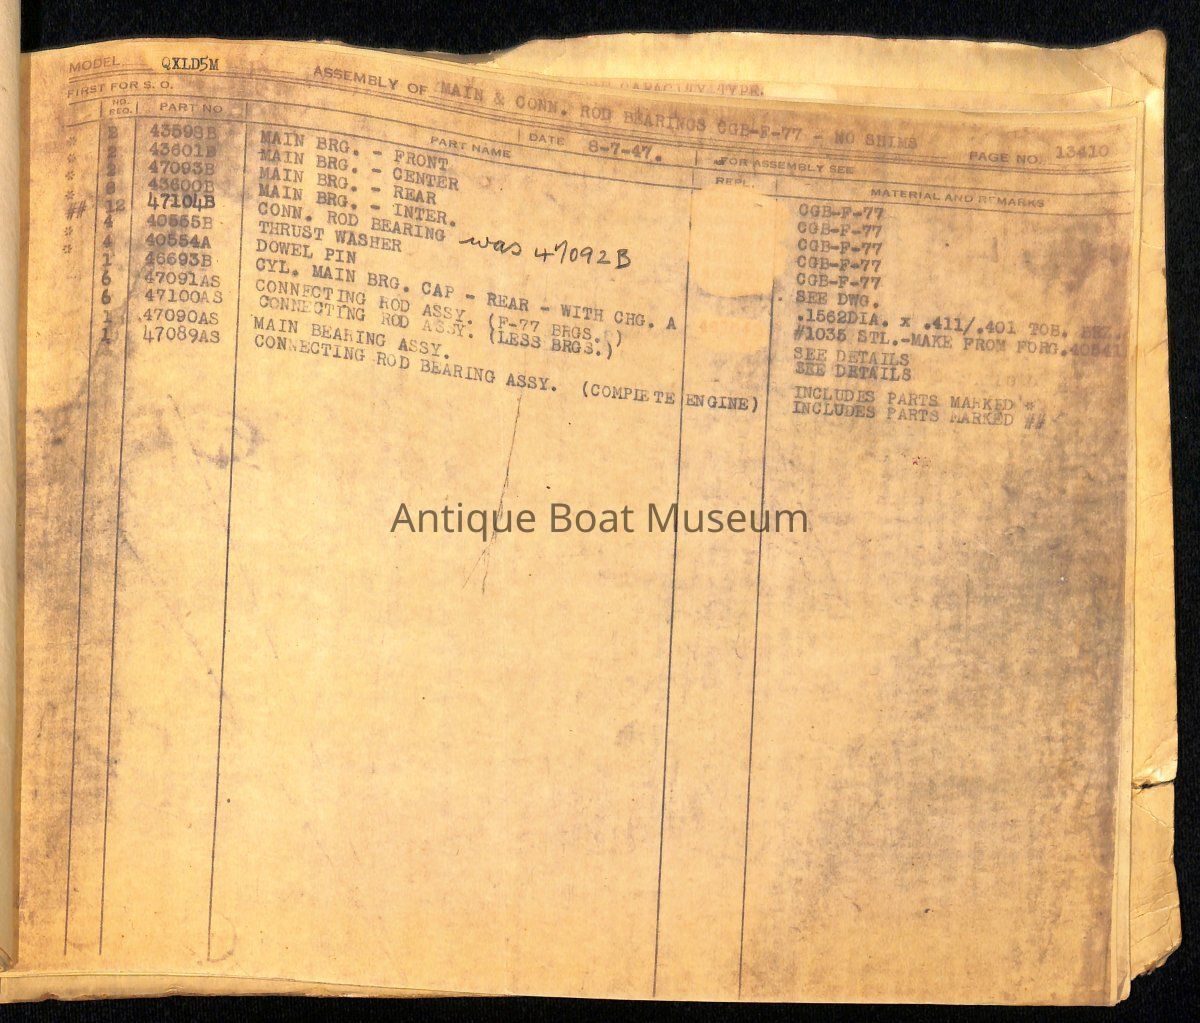 MODEL QXLD5M
ASSEMBLY OF MAIN & CONN. ROD BEARINGS CGB-F-77 - NO SHIMS
FIRST FOR S. O.
DATE 8-7-47.
FOR ASSEMBLY SEE
PAGE NO. 13410
NO. REQ. PART NO PART NAME REPL. MATERIAL AND REMARKS
* 2 43598B MAIN BRG. - FRONT CGB-F-77
* 2 43601B MAIN BRG. - CENTER CGB-F-77
* 2 47093B MAIN BRG. - REAR CGB-F-77
* 8 43600B MAIN BRG. - INTER. CGB-F-77
## 12 47104B CONN. ROD BEARING was 47092B CGB-F-77
* 4 40555B THRUST WASHER SEE DWG.
* 4 40554A DOWEL PIN .1562DIA. x .411/.401 TOB.
1 46693B CYL. MAIN BRG. CAP - REAR - WITH CHG. A #1035 STL.-MAKE FROM FORG.
6 47091AS CONNECTING ROD ASSY. (F-77 BRGS.) SEE DETAILS
6 47100AS CONNECTING ROD ASSY. (LESS BRGS.) SEE DETAILS
1 47090AS MAIN BEARING ASSY. INCLUDES PARTS MARKED *
1 47089AS CONNECTING ROD BEARING ASSY. (COMPLETE ENGINE) INCLUDES PARTS MARKED ##
Antique Boat Museum